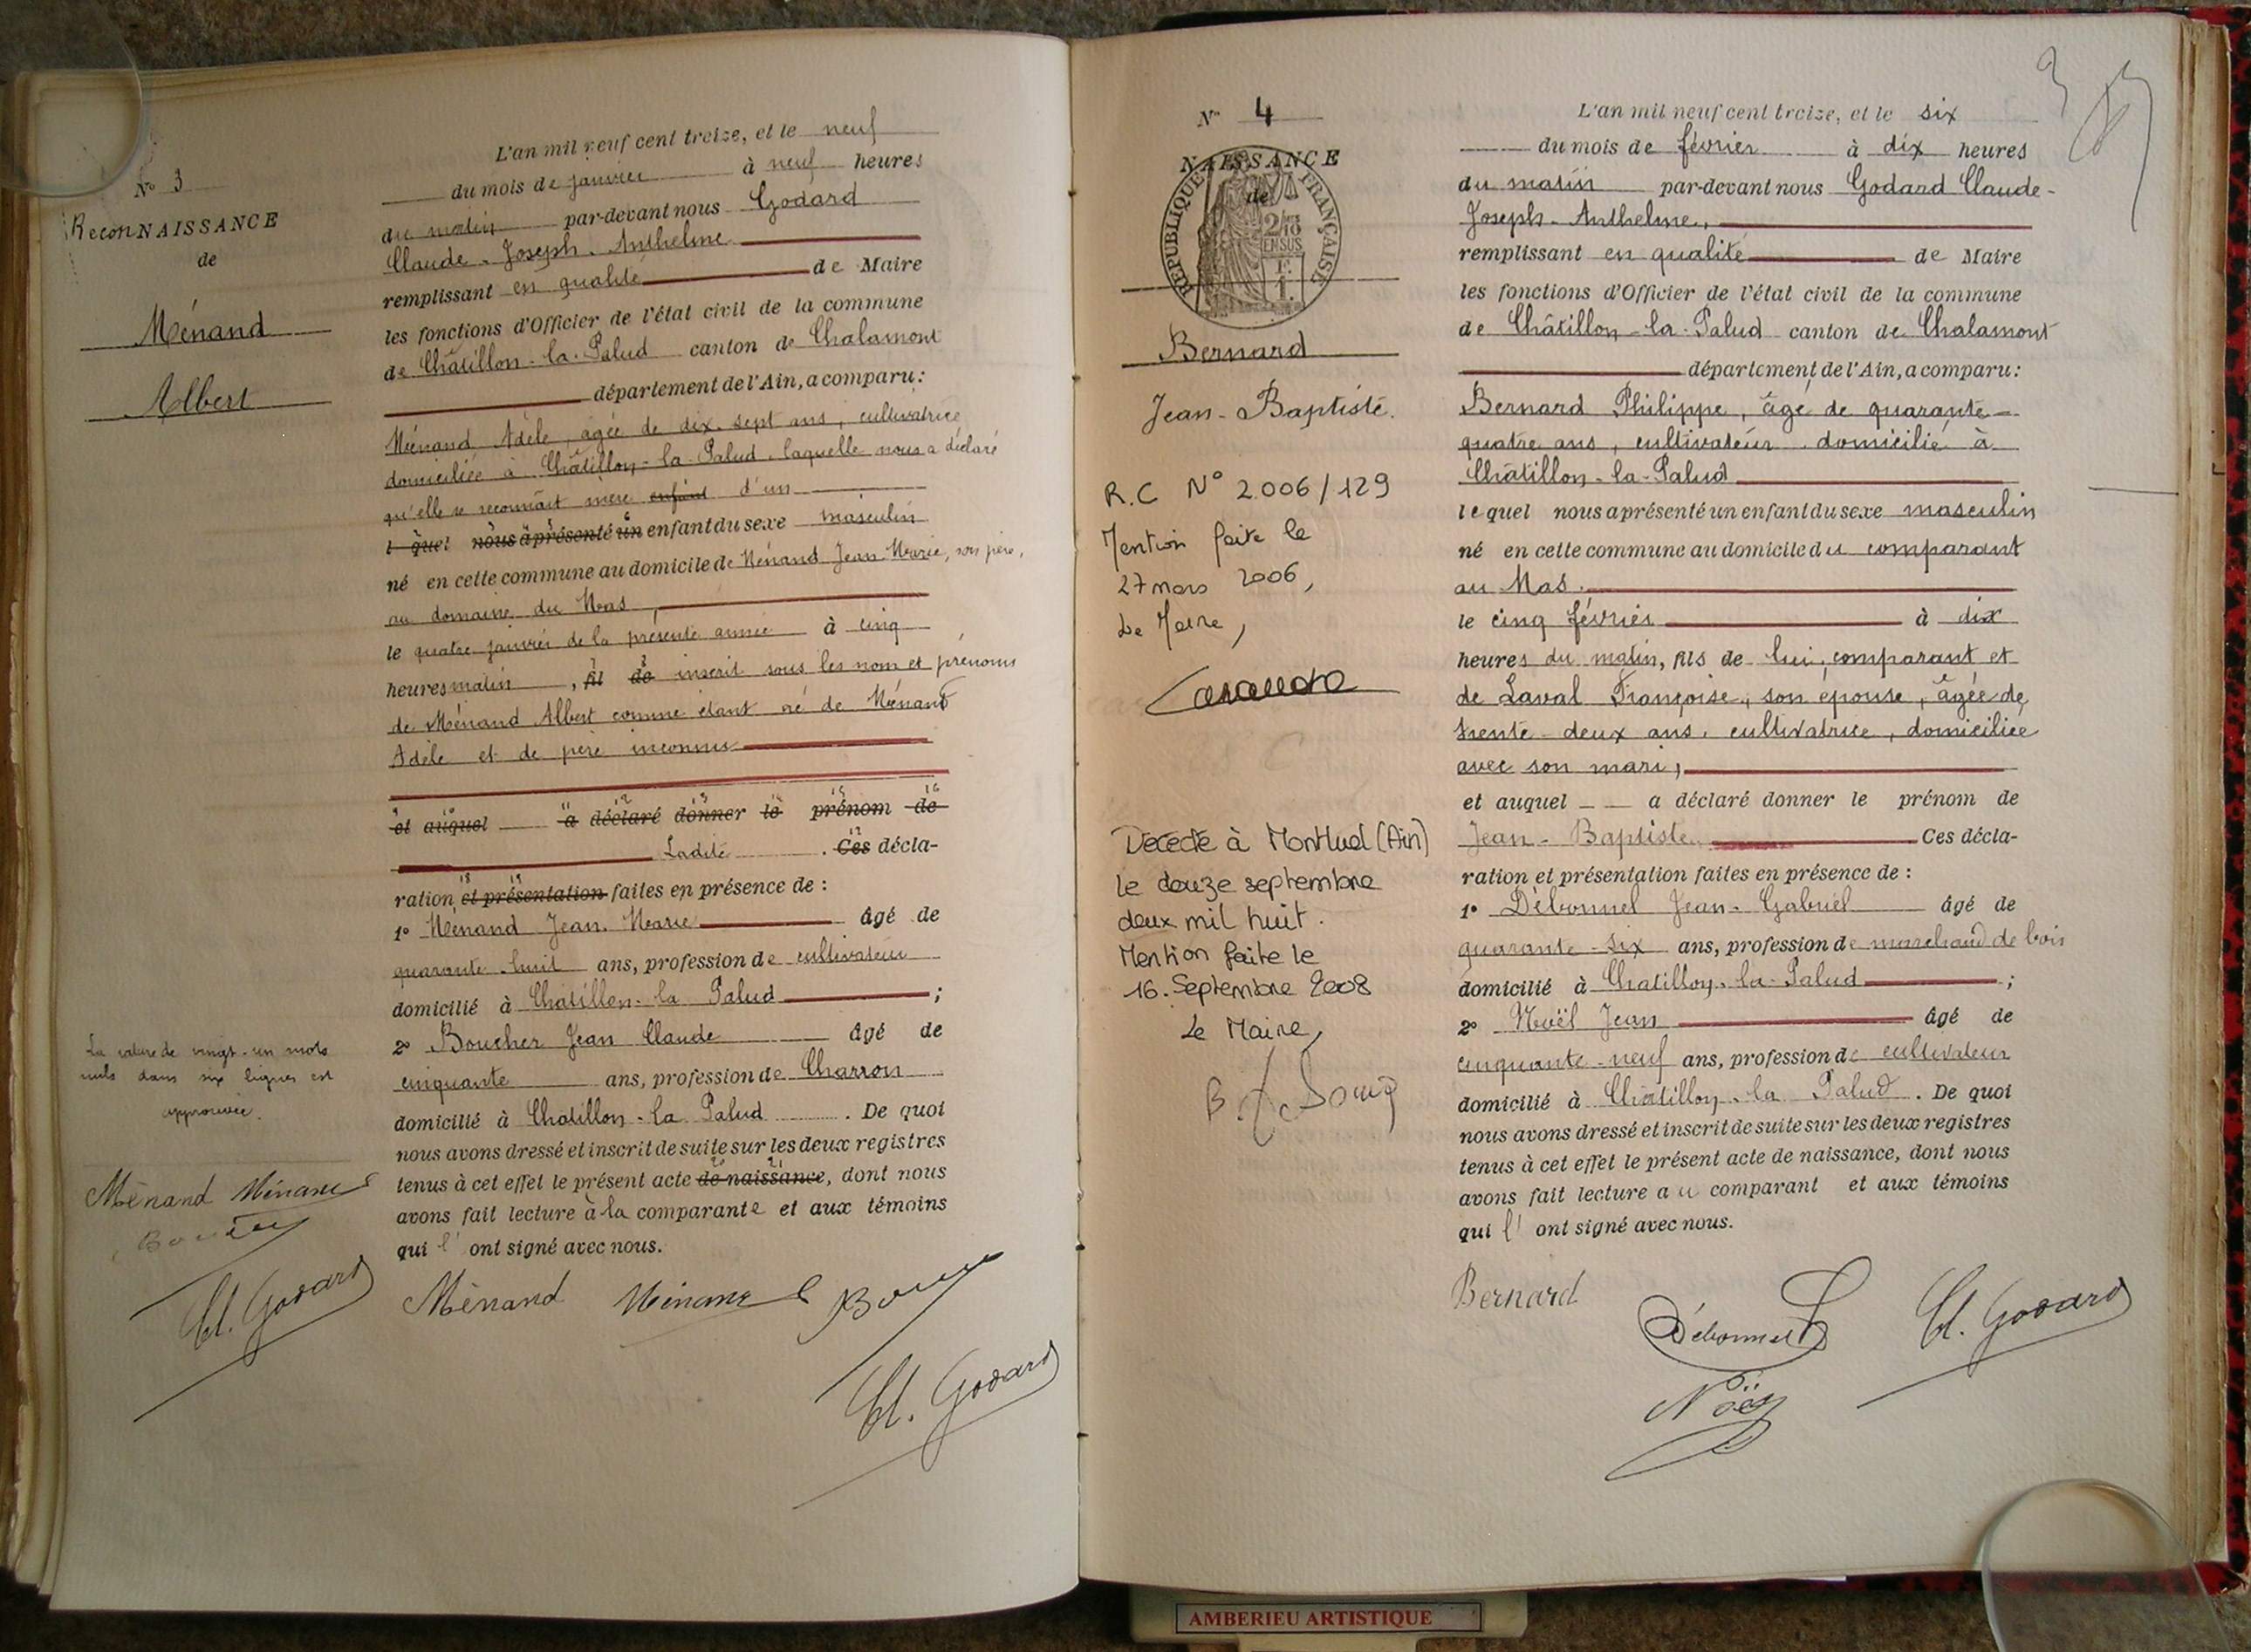 N° 3
ReconNAISSANCE
de
Ménand
Albert
L'an mil neuf cent treize, et le neuf
du mois de janvier à neuf heures
du matin par-devant nous Godard
Claude-Joseph-Anthelme
remplissant en qualité de Maire
les fonctions d'Officier de l'état civil de la commune
de Châtillon-la-Palud canton de Chalamont
département de l'Ain, a comparu:
Ménand Adèle, âgée de dix-sept ans, cultivatrice
domiciliée à Châtillon-la-Palud, laquelle nous a déclaré
qu'elle se reconnait mère enfant d'un
lequel nous a présenté un enfant du sexe masculin
né en cette commune au domicile de Ménand Jean Marie, son père,
au domaine du Mas,
le quatre janvier de la présente année à cinq
heures matin, fil de inscrit sous les nom et prénoms
de Ménand Albert comme étant né de Ménand
Adèle et de père inconnu
et auquel a déclaré donner le prénom de
Ladite. Ces décla-
ration et présentation faites en présence de :
1° Ménand Jean Marie âgé de
quarante-huit ans, profession de cultivateur
domicilié à Châtillon-la Palud ;
2° Boucher Jean Claude âgé de
cinquante ans, profession de Charron
domicilié à Chatillon-la Palud. De quoi
nous avons dressé et inscrit de suite sur les deux registres
tenus à cet effet le présent acte de naissance, dont nous
avons fait lecture à la comparante et aux témoins
qui l' ont signé avec nous.
La rature de vingt-un mots
nuls dans six lignes est
approuvée.
Ménand Ménand
Cl. Godard
Ménand Ménand
Cl. Godard
N° 4
NAISSANCE
de
REPUBLIQUE FRANÇAISE
2/10 EN SUS
Bernard
Jean-Baptiste.
R.C N° 2006/129
Mention faite le
27 mars 2006,
Le Maire,
Décédé à Montluel (Ain)
le douze septembre
deux mil huit.
Mention faite le
16. Septembre 2008
Le Maire,
3
L'an mil neuf cent treize, et le six
du mois de février à dix heures
du matin par-devant nous Godard Claude-
Joseph-Anthelme,
remplissant en qualité de Maire
les fonctions d'Officier de l'état civil de la commune
de Châtillon-la-Palud canton de Chalamont
département de l'Ain, a comparu:
Bernard Philippe, âgé de quarante-
quatre ans, cultivateur domicilié à
Châtillon-la-Palud
lequel nous a présenté un enfant du sexe masculin
né en cette commune au domicile du comparant
au Mas.
le cinq février à dix
heures du matin, fils de lui, comparant et
de Laval Françoise, son épouse, âgée de
trente-deux ans, cultivatrice, domiciliée
avec son mari,
et auquel a déclaré donner le prénom de
Jean-Baptiste. Ces décla-
ration et présentation faites en présence de :
1° Débonnel Jean-Gabriel âgé de
quarante-six ans, profession de marchand de bois
domicilié à Chatillon-la-Palud ;
2° Noël Jean âgé de
cinquante-neuf ans, profession de cultivateur
domicilié à Châtillon-la Palud. De quoi
nous avons dressé et inscrit de suite sur les deux registres
tenus à cet effet le présent acte de naissance, dont nous
avons fait lecture au comparant et aux témoins
qui l' ont signé avec nous.
Bernard
Débonnel
Cl. Godard
Noël
AMBERIEU ARTISTIQUE